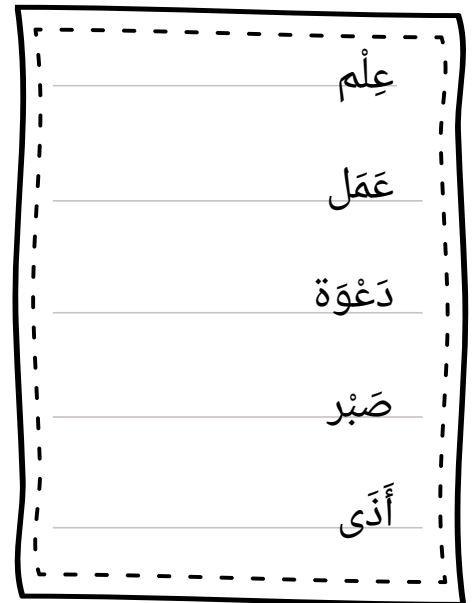 عِلْم
عَمَل
دَعْوَة
صَبْر
أَذَى